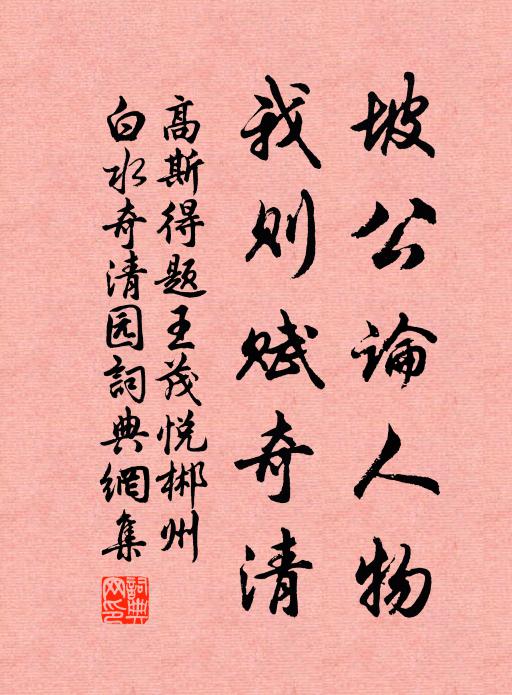 坡公論人物
我则赋奇清
高斯得题王茂悦郴州
白水奇清园詞典網集
詞典
网印